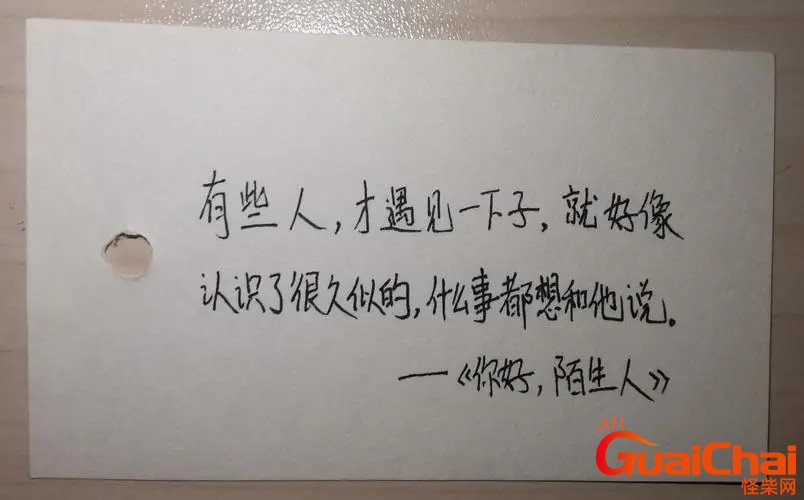 有些人，才遇见一下子，就好像
认识了很久似的，什么事都想和他说。
——《你好，陌生人》
GuaiChai
怪柴网